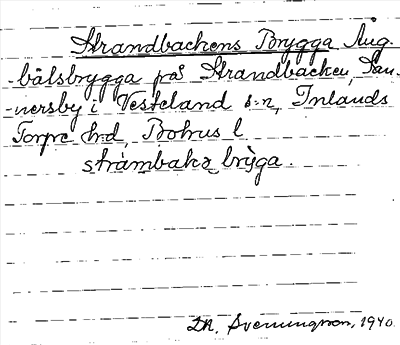 Strandbackens Brygga Ång-
-båtsbrygga på Strandbacken, San-
-nersby i Vesteland s:n, Inlands
Torpe hrd, Bohus l
stràmbakə brỳga.
Svenungsson, 1940.